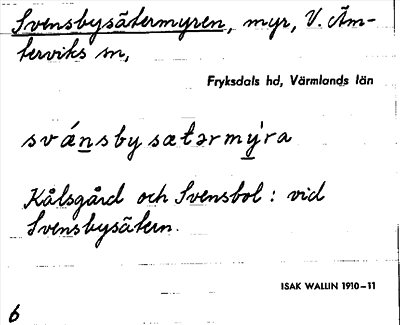 Svensbysätermyren, myr, V. Äm-
terviks sn,
Fryksdals hd, Värmlands län
svánsby sætərmýra
Kålsgård och Svensbol: vid
Svensbysätern.
ISAK WALLIN 1910-11
6